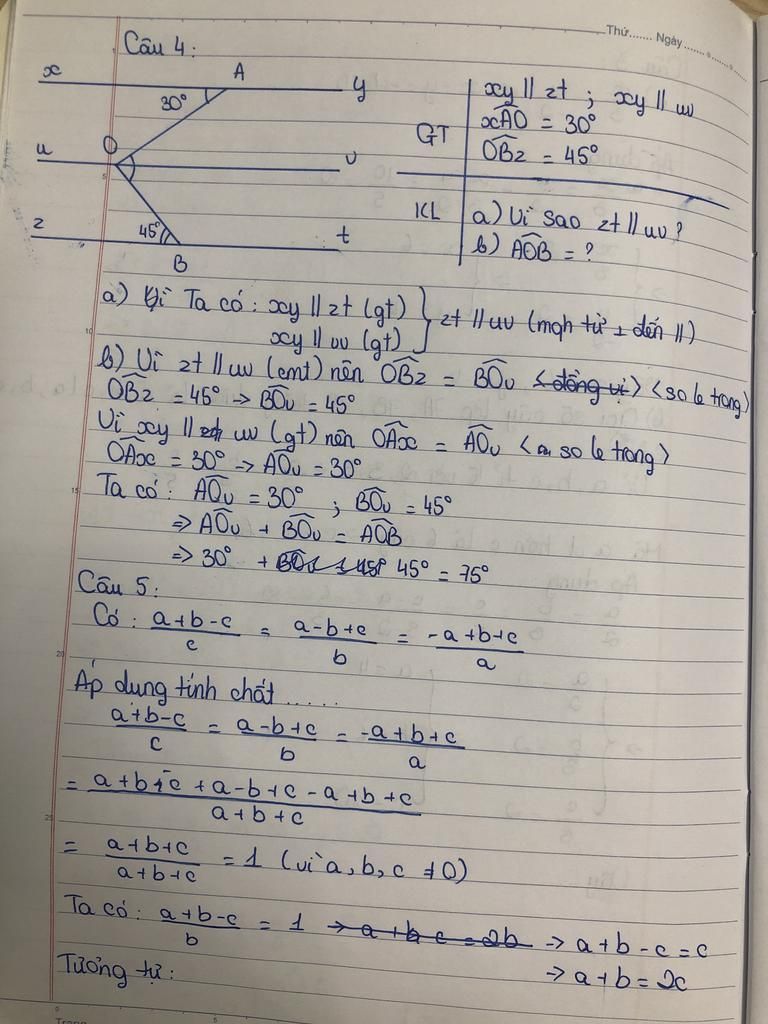 Thứ....... Ngày.......
Câu 4:
x A y
30°
u O v
z 45° B t
GT
xy // zt ; xy // uv
xÂO = 30°
OBz = 45°
KL
a) Vì sao zt // uv?
b) AOB = ?
a) Vì Ta có: xy // zt (gt)
xy // uv (gt) } zt // uv (mqh từ ⊥ đến //)
b) Vì zt // uv (cmt) nên OBz = BOv <đồng vị> <so le trong>
OBz = 45° → BOv = 45°
Vì xy // zt uv (gt) nên OAx = AOv < so le trong>
OAx = 30° → AOv = 30°
Ta có: AOv = 30° ; BOv = 45°
⇒ AOv + BOv = AOB
⇒ 30° + 45° = 75°
Câu 5:
Có: a+b-c/c = a-b+c/b = -a+b+c/a
Áp dụng tính chất ......
a+b-c/c = a-b+c/b = -a+b+c/a
= a+b-c+a-b+c-a+b+c/a+b+c
= a+b+c/a+b+c = 1 (vì a, b, c ≠ 0)
Ta có: a+b-c/b = 1 → a+b-c = 2b → a+b-c = c
Tương tự: ⇒ a+b = 2c